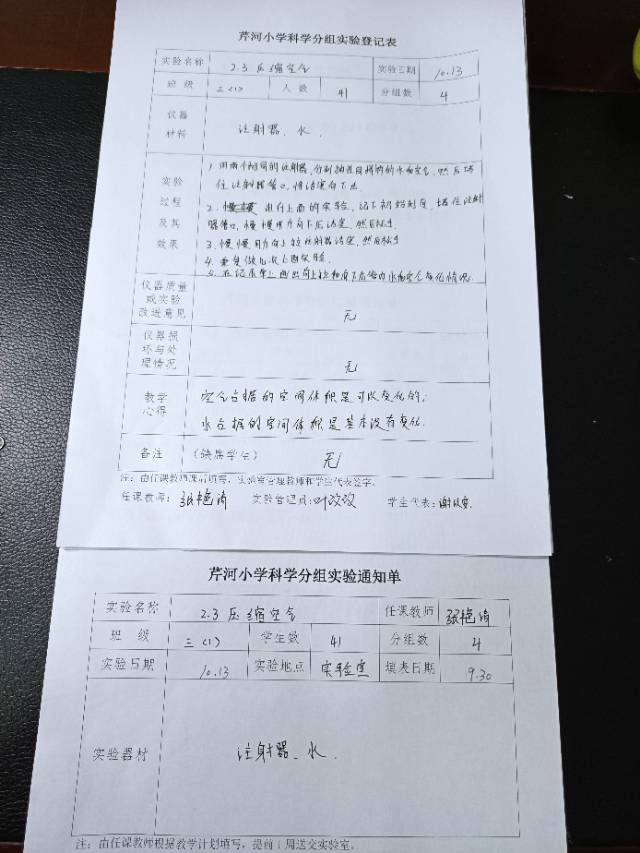 芹河小学科学分组实验登记表
实验名称 2.3 压缩空气 实验日期 10.13
班 级 三(1) 人 数 41 分组数 4
仪器材料 注射器、水.
实验过程及其效果
1. 用两个相同的注射器,分别抽进同样的水和空气,然后堵
住注射器管口,用活塞向下压.
2. 进行上面的实验,记下初始刻度,堵住注射
器管口,慢慢用力向下压活塞,然后松手
3. 慢慢用力向上拉注射器活塞,然后松手
4. 重复做几次上面实验.
5. 在记录单上画出向上拉和向下压管内水和空气变化情况
仪器质量或实验改进意见 无
仪器损坏与处理情况 无
教学心得 空气占据的空间体积是可以变化的;
水占据的空间体积是基本没有变化.
备注 (缺席学生) 无
注:由任课教师课后填写,实验室管理教师和学生代表签字。
任课教师: 实验管理员: 学生代表:
芹河小学科学分组实验通知单
实验名称 2.3 压缩空气 任课教师
班 级 三(1) 学生数 41 分组数 4
实验日期 10.13 实验地点 实验室 填表日期 9.30
实验器材 注射器、水.
注:由任课教师根据教学计划填写,提前1周送交实验室。